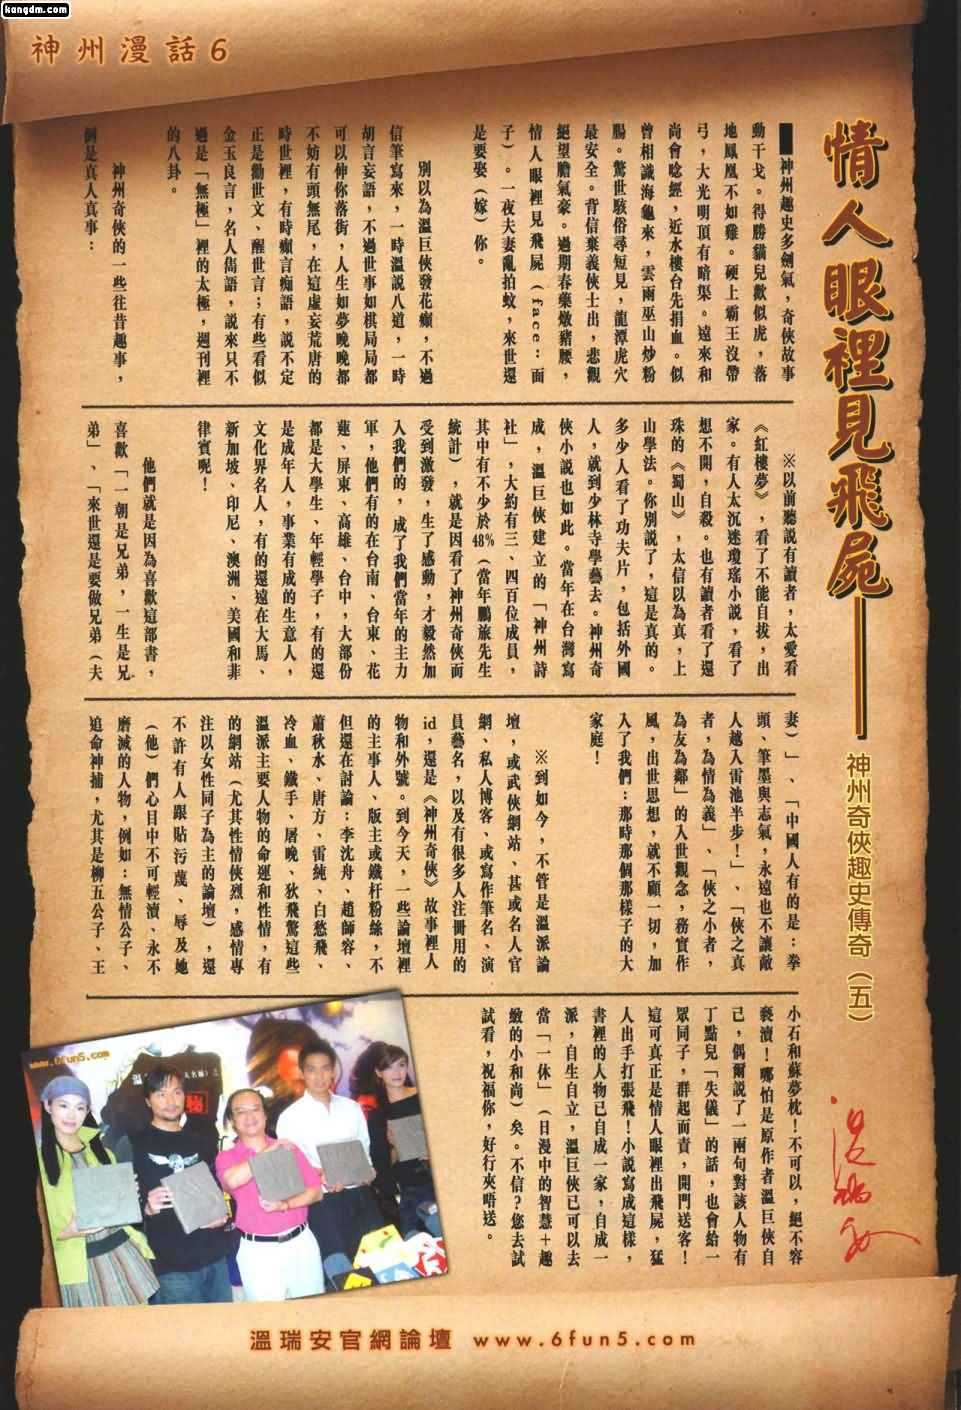 kangdm.com
神州漫話6
情人眼裡見飛屍——
神州奇俠趣史傳奇(五)
神州趣史多劍氣,奇俠故事
動干戈。得勝貓兒歡似虎,落
地鳳凰不如雞。硬上霸王沒帶
弓,大光明頂有暗渠。遠來和
尚會唸經,近水樓台先捐血。似
曾相識海龜來,雲雨巫山炒粉
腸。驚世駭俗尋短見,龍潭虎穴
最安全。背信棄義俠士出,悲觀
絕望膽氣豪。過期春藥燉豬腰,
情人眼裡見飛屍(face:面
子)。一夜夫妻亂拍蚊,來世還
是要娶(嫁)你。
別以為溫巨俠發花癲,不過
信筆寫來,一時溫說八道,一時
胡言妄語,不過世事如棋局局都
可以伸你落街,人生如夢晚晚都
不妨有頭無尾,在這虛妄荒唐的
時世裡,有時癲言痴語,說不定
正是勸世文、醒世言;有些看似
金玉良言,名人雋語,說來只不
過是「無極」裡的太極,週刊裡
的八卦。
神州奇俠的一些往昔趣事,
倒是真人真事:
※以前聽說有讀者,太愛看
《紅樓夢》,看了不能自拔,出
家。有人太沉迷瓊瑤小說,看了
想不開,自殺。也有讀者看了還
珠的《蜀山》,太信以為真,上
山學法。你別說了,這是真的。
多少人看了功夫片,包括外國
人,就到少林寺學藝去。神州奇
俠小說也如此。當年在台灣寫
成,溫巨俠建立的「神州詩
社」,大約有三、四百位成員,
其中有不少於48%(當年鵬旅先生
統計),就是因看了神州奇俠而
受到激發,生了感動,才毅然加
入我們的,成了我們當年的主力
軍,他們有的在台南、台東、花
蓮、屏東、高雄、台中,大部份
都是大學生、年輕學子,有的還
是成年人,事業有成的生意人,
文化界名人,有的還遠在大馬、
新加坡、印尼、澳洲、美國和菲
律賓呢!
他們就是因為喜歡這部書,
喜歡「一朝是兄弟,一生是兄
弟」、「來世還是要做兄弟(夫
妻)」、「中國人有的是:拳
頭、筆墨與志氣,永遠也不讓敵
人越入雷池半步!」、「俠之真
者,為情為義」、「俠之小者,
為友為鄰」的入世觀念,務實作
風,出世思想,就不顧一切,加
入了我們:那時那個那樣子的大
家庭!
※到如今,不管是溫派論
壇,或武俠網站、甚或名人官
網、私人博客、或寫作筆名、演
員藝名,以及有很多人注冊用的
id,還是《神州奇俠》故事裡人
物和外號。到今天,一些論壇裡
的主事人、版主或鐵杆粉絲,不
但還在討論:李沈舟、趙師容、
蕭秋水、唐方、雷純、白愁飛、
冷血、鐵手、屠晚、狄飛驚這些
溫派主要人物的命運和性情,有
的網站(尤其性情俠烈,感情專
注以女性同子為主的論壇),還
不許有人跟貼污蔑、辱及她
(他)們心目中不可輕瀆、永不
磨滅的人物,例如:無情公子、
追命神捕,尤其是柳五公子、王
小石和蘇夢枕!不可以,絕不容
褻瀆!哪怕是原作者溫巨俠自
己,偶爾說了一兩句對該人物有
丁點兒「失儀」的話,也會給一
眾同子,群起而責,開門送客!
這可真正是情人眼裡出飛屍,猛
人出手打張飛!小說寫成這樣,
書裡的人物已自成一家,自成一
派,自生自立,溫巨俠已可以去
當「一休」(日漫中的智慧+趣
緻的小和尚)矣。不信?您去試
試看,祝福你,好行夾唔送。
溫瑞安
www.6fun5.com
秘
溫瑞安官網論壇 www.6fun5.com